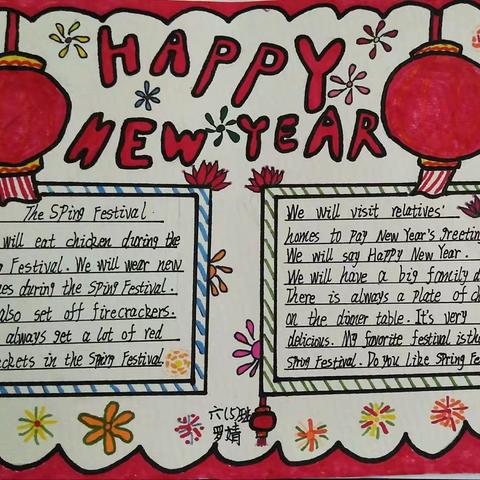 HAPPY
NEW YEAR
The SPing Festival.
will eat chicken during the
Festival. We will wear new
es during the SPing Festival.
also set off firecrackers.
always get a lot of red
ckets in the SPing Festival.
We will visit relatives'
homes to Pay New Year's greetin
We will say HaPPy New Year.
We will have a big family d
There is always a Plate of
on the dinner table. It's very
delicious. My favorite festival is the
SPring Festival. Do you like SPring Fe
六(5)班
罗婧